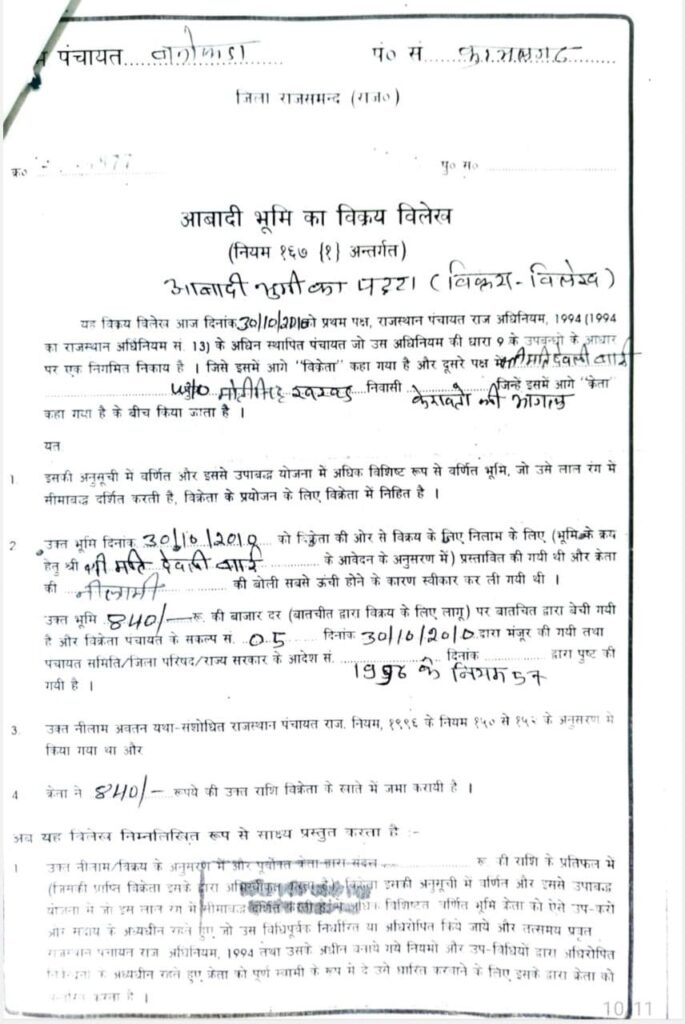 पंचायत ........ पं० सं ........
जिला राजसमन्द (राज०)
क्र० ........ पु० स० ........
आबादी भूमि का विक्रय विलेख
(नियम १६७ {१} अन्तर्गत)
आबादी भुमी का पट्टा (विक्रय-विलेख)
यह विक्रय विलेख आज दिनांक 30/10/2010 को प्रथम पक्ष, राजस्थान पंचायत राज अधिनियम, 1994 (1994
का राजस्थान अधिनियम सं. 13) के अधिन स्थापित पंचायत जो उस अधिनियम की धारा 9 के उपबन्धो के आधार
पर एक निगमित निकाय है । जिसे इसमें आगे "विक्रेता" कहा गया है और दूसरे पक्ष में श्रीमति देवली बाई
W/O मोतीसिंह खरवड़ निवासी केरावतो की भागल जिन्हे इसमें आगे "क्रेता
कहा गया है के बीच किया जाता है ।
यत
1. इसकी अनुसूची में वर्णित और इससे उपाबद्ध योजना में अधिक विशिष्ट रूप से वर्णित भूमि, जो उसे लाल रंग में
सीमाबद्ध दर्शित करती है, विक्रेता के प्रयोजन के लिए विक्रेता में निहित है ।
2 उक्त भूमि दिनांक 30/10/2010 को विक्रेता की ओर से विक्रय के लिए निलाम के लिए (भूमि के क्रय
हेतु श्री श्री मति देवली बाई के आवेदन के अनुसरण में) प्रस्तावित की गयी थी और क्रेता
की नीलामी की बोली सबसे ऊंची होने के कारण स्वीकार कर ली गयी थी ।
उक्त भूमि 840/- रू. की बाजार दर (बातचीत द्वारा विक्रय के लिए लागू) पर बातचित द्वारा बेची गयी
है और विक्रेता पंचायत के सकल्प सं. 05 दिनांक 30/10/2010 द्वारा मंजूर की गयी तथा
पंचायत समिति/जिला परिषद/राज्य सरकार के आदेश सं. ........ दिनांक ........ द्वारा पुष्ट की
गयी है । 1996 के नियम 57
3. उक्त नीलाम अवतन यथा-संशोधित राजस्थान पंचायत राज. नियम, १९९६ के नियम १५० से १५२ के अनुसरण में
किया गया था और
4 क्रेता ने 840/- रूपये की उक्त राशि विक्रेता के खाते में जमा करायी है ।
अब यह विलेख निम्नलिखित रूप से साक्ष्य प्रस्तुत करता है :-
1 उक्त नीलाम/विक्रय के अनुसरण में और पूर्वोक्त क्रेता द्वारा संदत्त ........ रू की राशि के प्रतिफल में
(जिसकी प्राप्ति विक्रेता इसके द्वारा इसकी अनुसूची में वर्णित और इससे उपाबद्ध
योजना में जो इस लाल रंग में सीमाबद्ध दर्शित अधिक विशिष्टत वर्णित भूमि क्रेता को ऐसे उप-करो
और संदाय के अध्यधीन रहते हुए जो उस विधिपूर्वक निर्धारित या अधिरोपित किये जाये और तत्समय प्रवृत
राजस्थान पंचायत राज अधिनियम, 1994 तथा उसके अधीन बनाये गये नियमो और उप-विधियों द्वारा अधिरोपित
के अध्यधीन रहते हुए क्रेता को पूर्ण स्वामी के रूप में दे उगे धारित करवाने के लिए इसके द्वारा क्रेता को
करता है ।
10/11